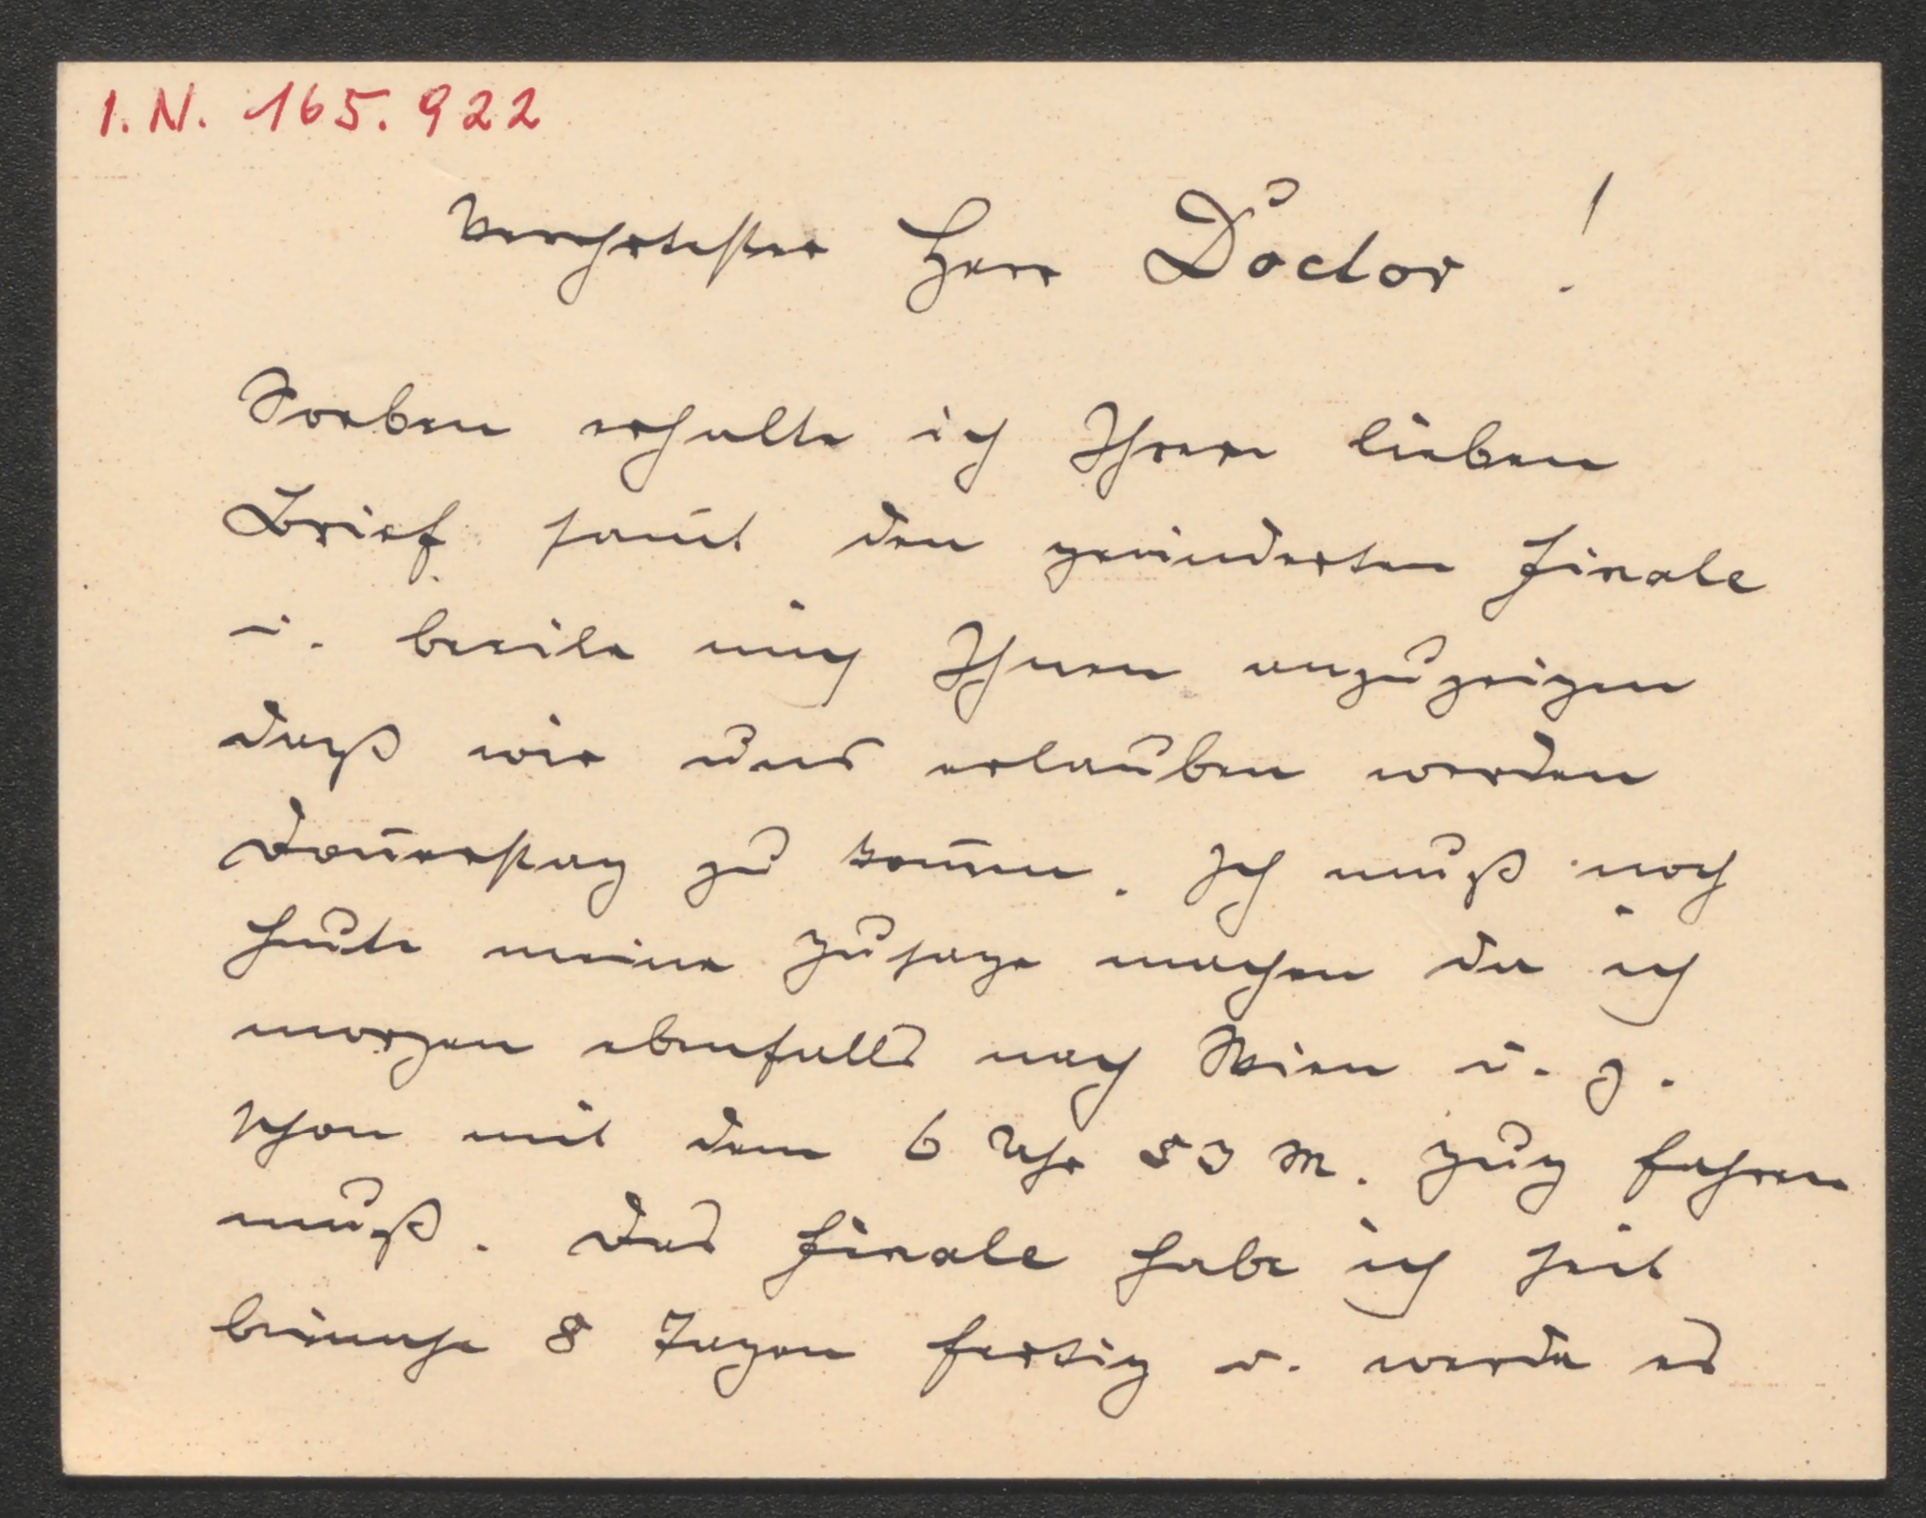 I.N. 165.922
Verehrtester Herr Doctor !
Soeben erhalte ich Ihren lieben
Brief samt den geänderten Finale
u. beeile mich Ihnen anzuzeigen
daß wir uns erlauben werden
Donnerstag zu kommen. Ich muß noch
heute meine Zusage machen da ich
morgen ebenfalls nach Wien u. z.
schon mit dem 6 Uhr 53 M. Zug fahren
muß. Das Finale habe ich seit
beinahe 8 Tagen fertig u. werde es